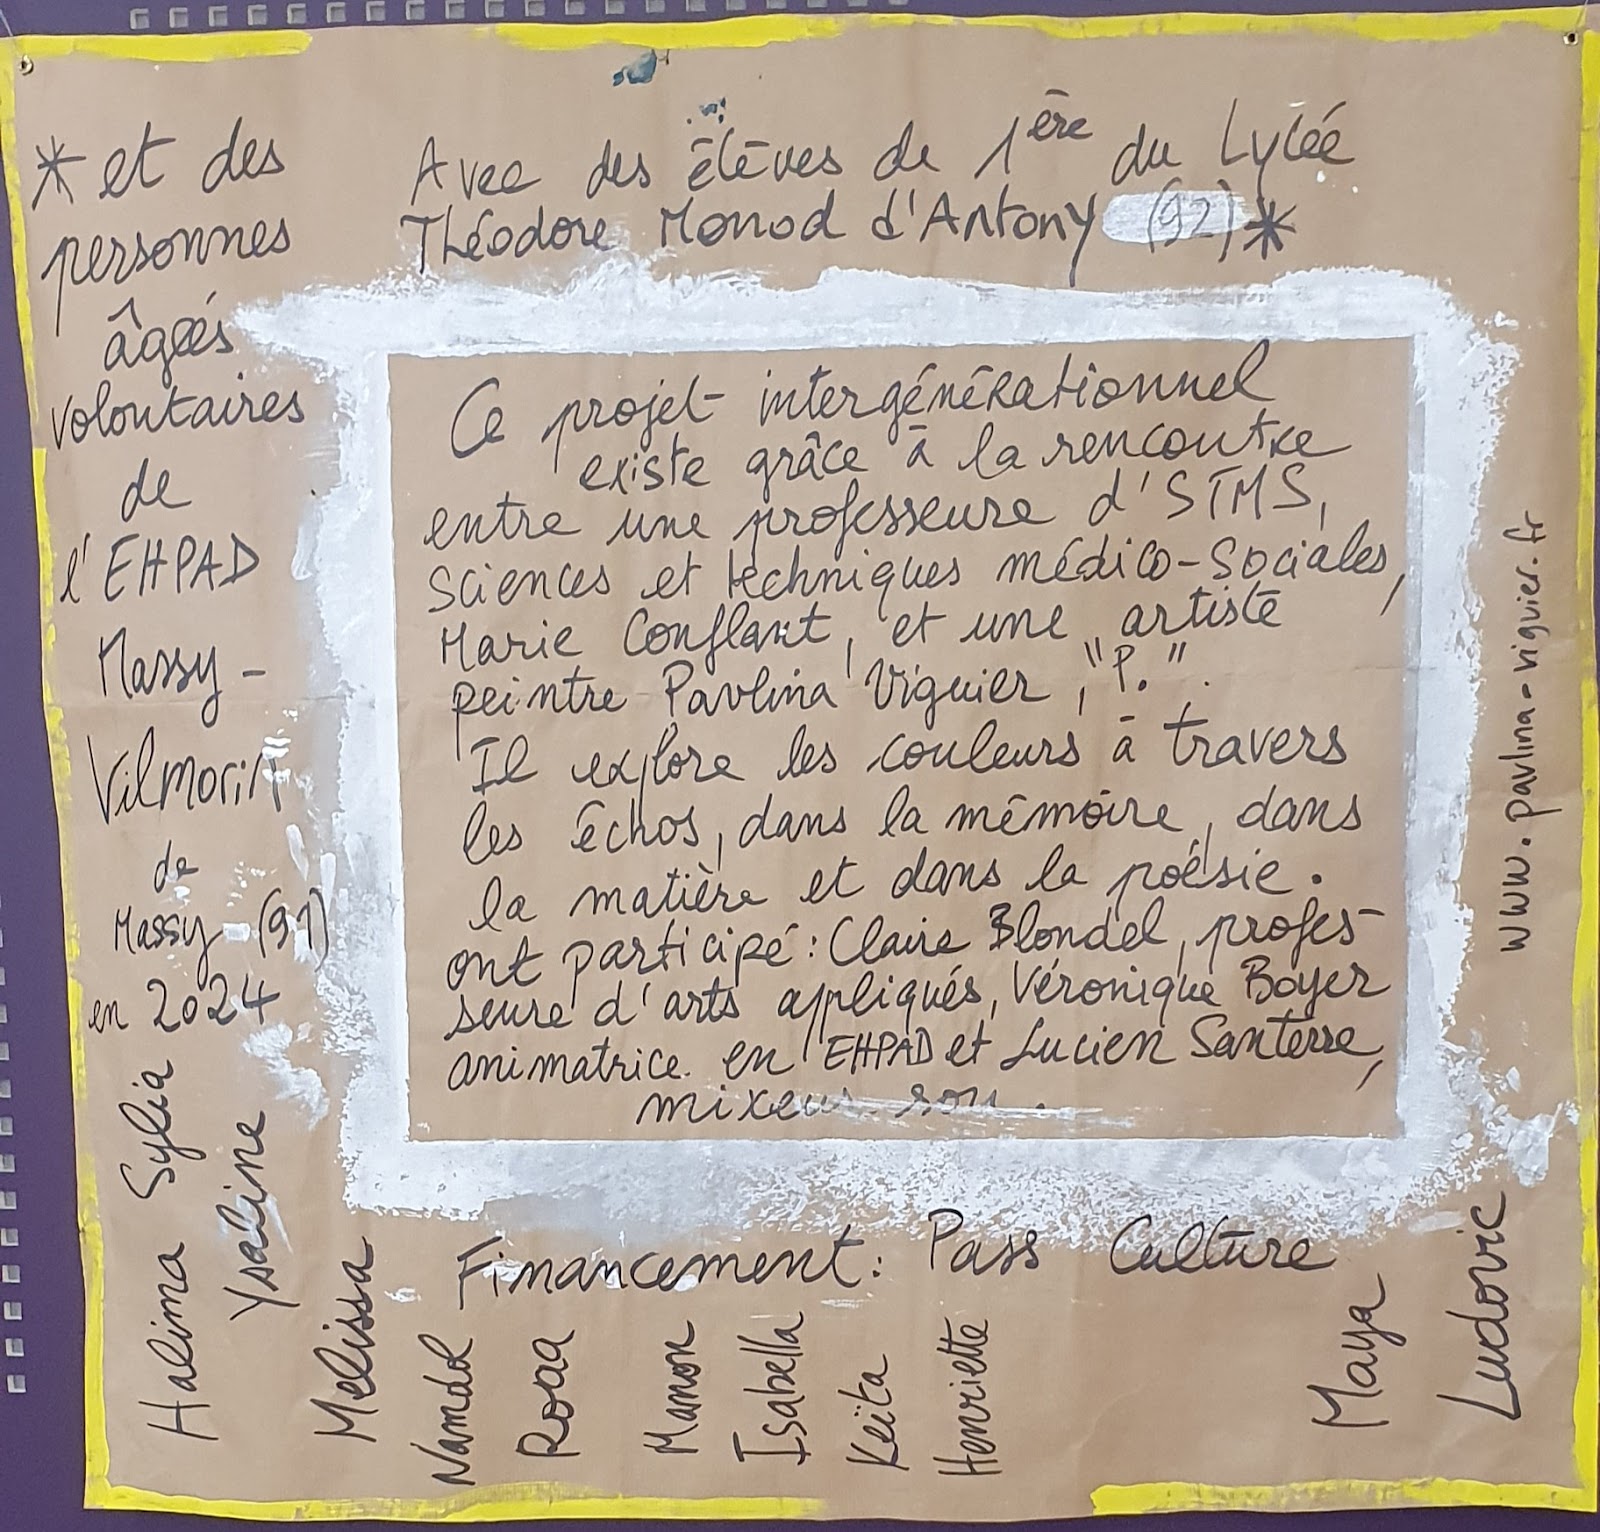 Avec des élèves de 1ère du Lycée
Théodore Monod d'Antony (92)*
* et des
personnes
âgées
volontaires
de
l'EHPAD
Massy-
Vilmorin
de
Massy (91)
en 2024
Ce projet intergénérationnel
existe grâce à la rencontre
entre une professeure d'STMS,
Sciences et techniques médico-sociales,
Marie Conflant, et une artiste
peintre Pavlina Viguier, "P.".
Il explore les couleurs à travers
les échos, dans la mémoire, dans
la matière et dans la poésie.
ont participé : Claire Blondel, profes-
seure d'arts appliqués, Véronique Boyer
animatrice en EHPAD et Lucien Santerre,
mixeur son.
www.pavlina-viguier.fr
Financement : Pass Culture
Halima Sylia
Ysaline
Melissa
Namdol
Roaa
Manon
Isabella
Keïta
Henriette
Maya
Ludovic